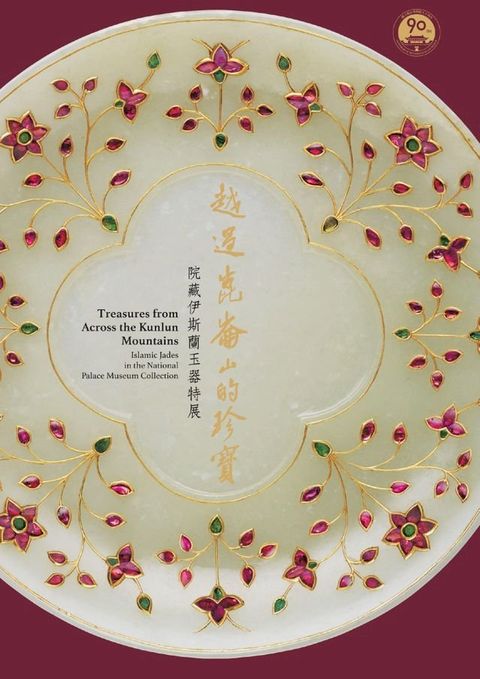 越過崑崙山的珍寶
院藏伊斯蘭玉器特展
Treasures from
Across the Kunlun
Mountains
Islamic Jades
in the National
Palace Museum Collection
90